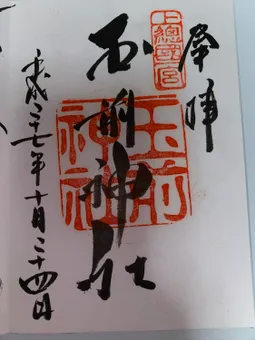 奉拝
上総國一宮
玉前神社
玉前神社
平成二十七年十月二十四日